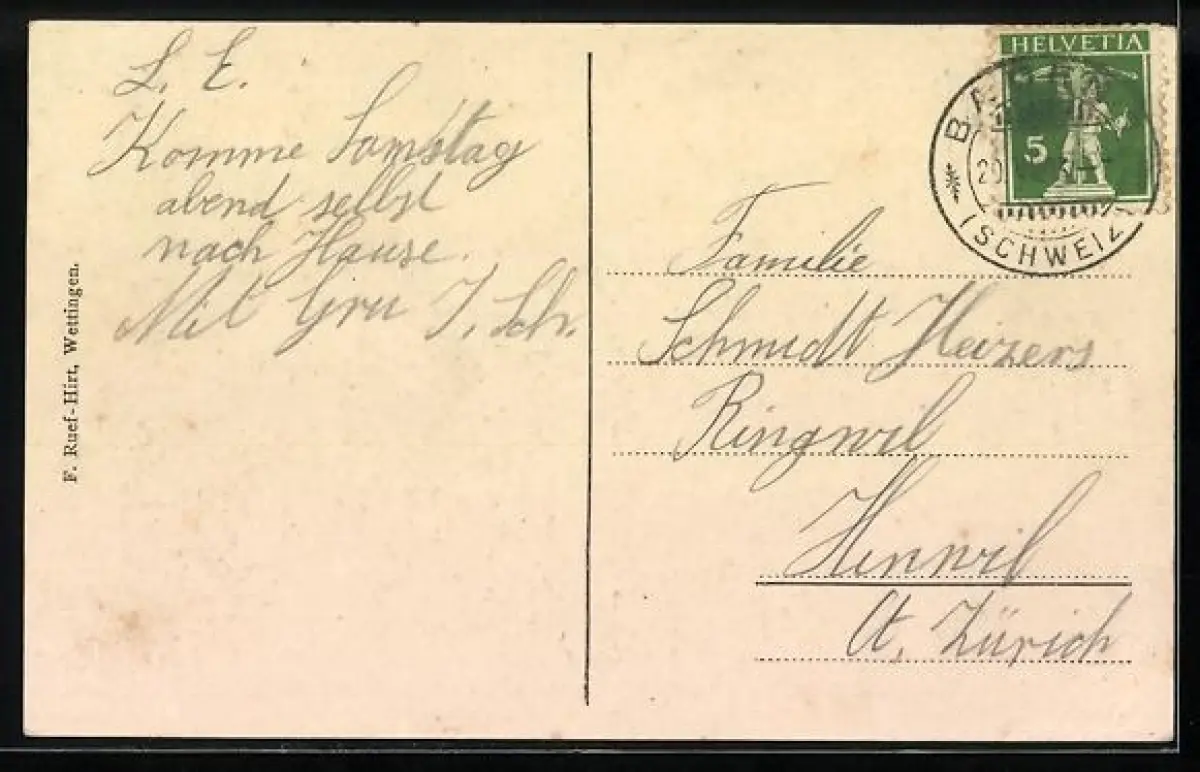 L. E.
Komme Samstag
abend selbst
nach Hause.
Mit Gru J. Sch.
F. Ruef-Hirt, Wettingen.
HELVETIA
5
(SCHWEIZ)
Familie
Schmidt Heizers
Ringwil
Hinwil
Ct. Zürich